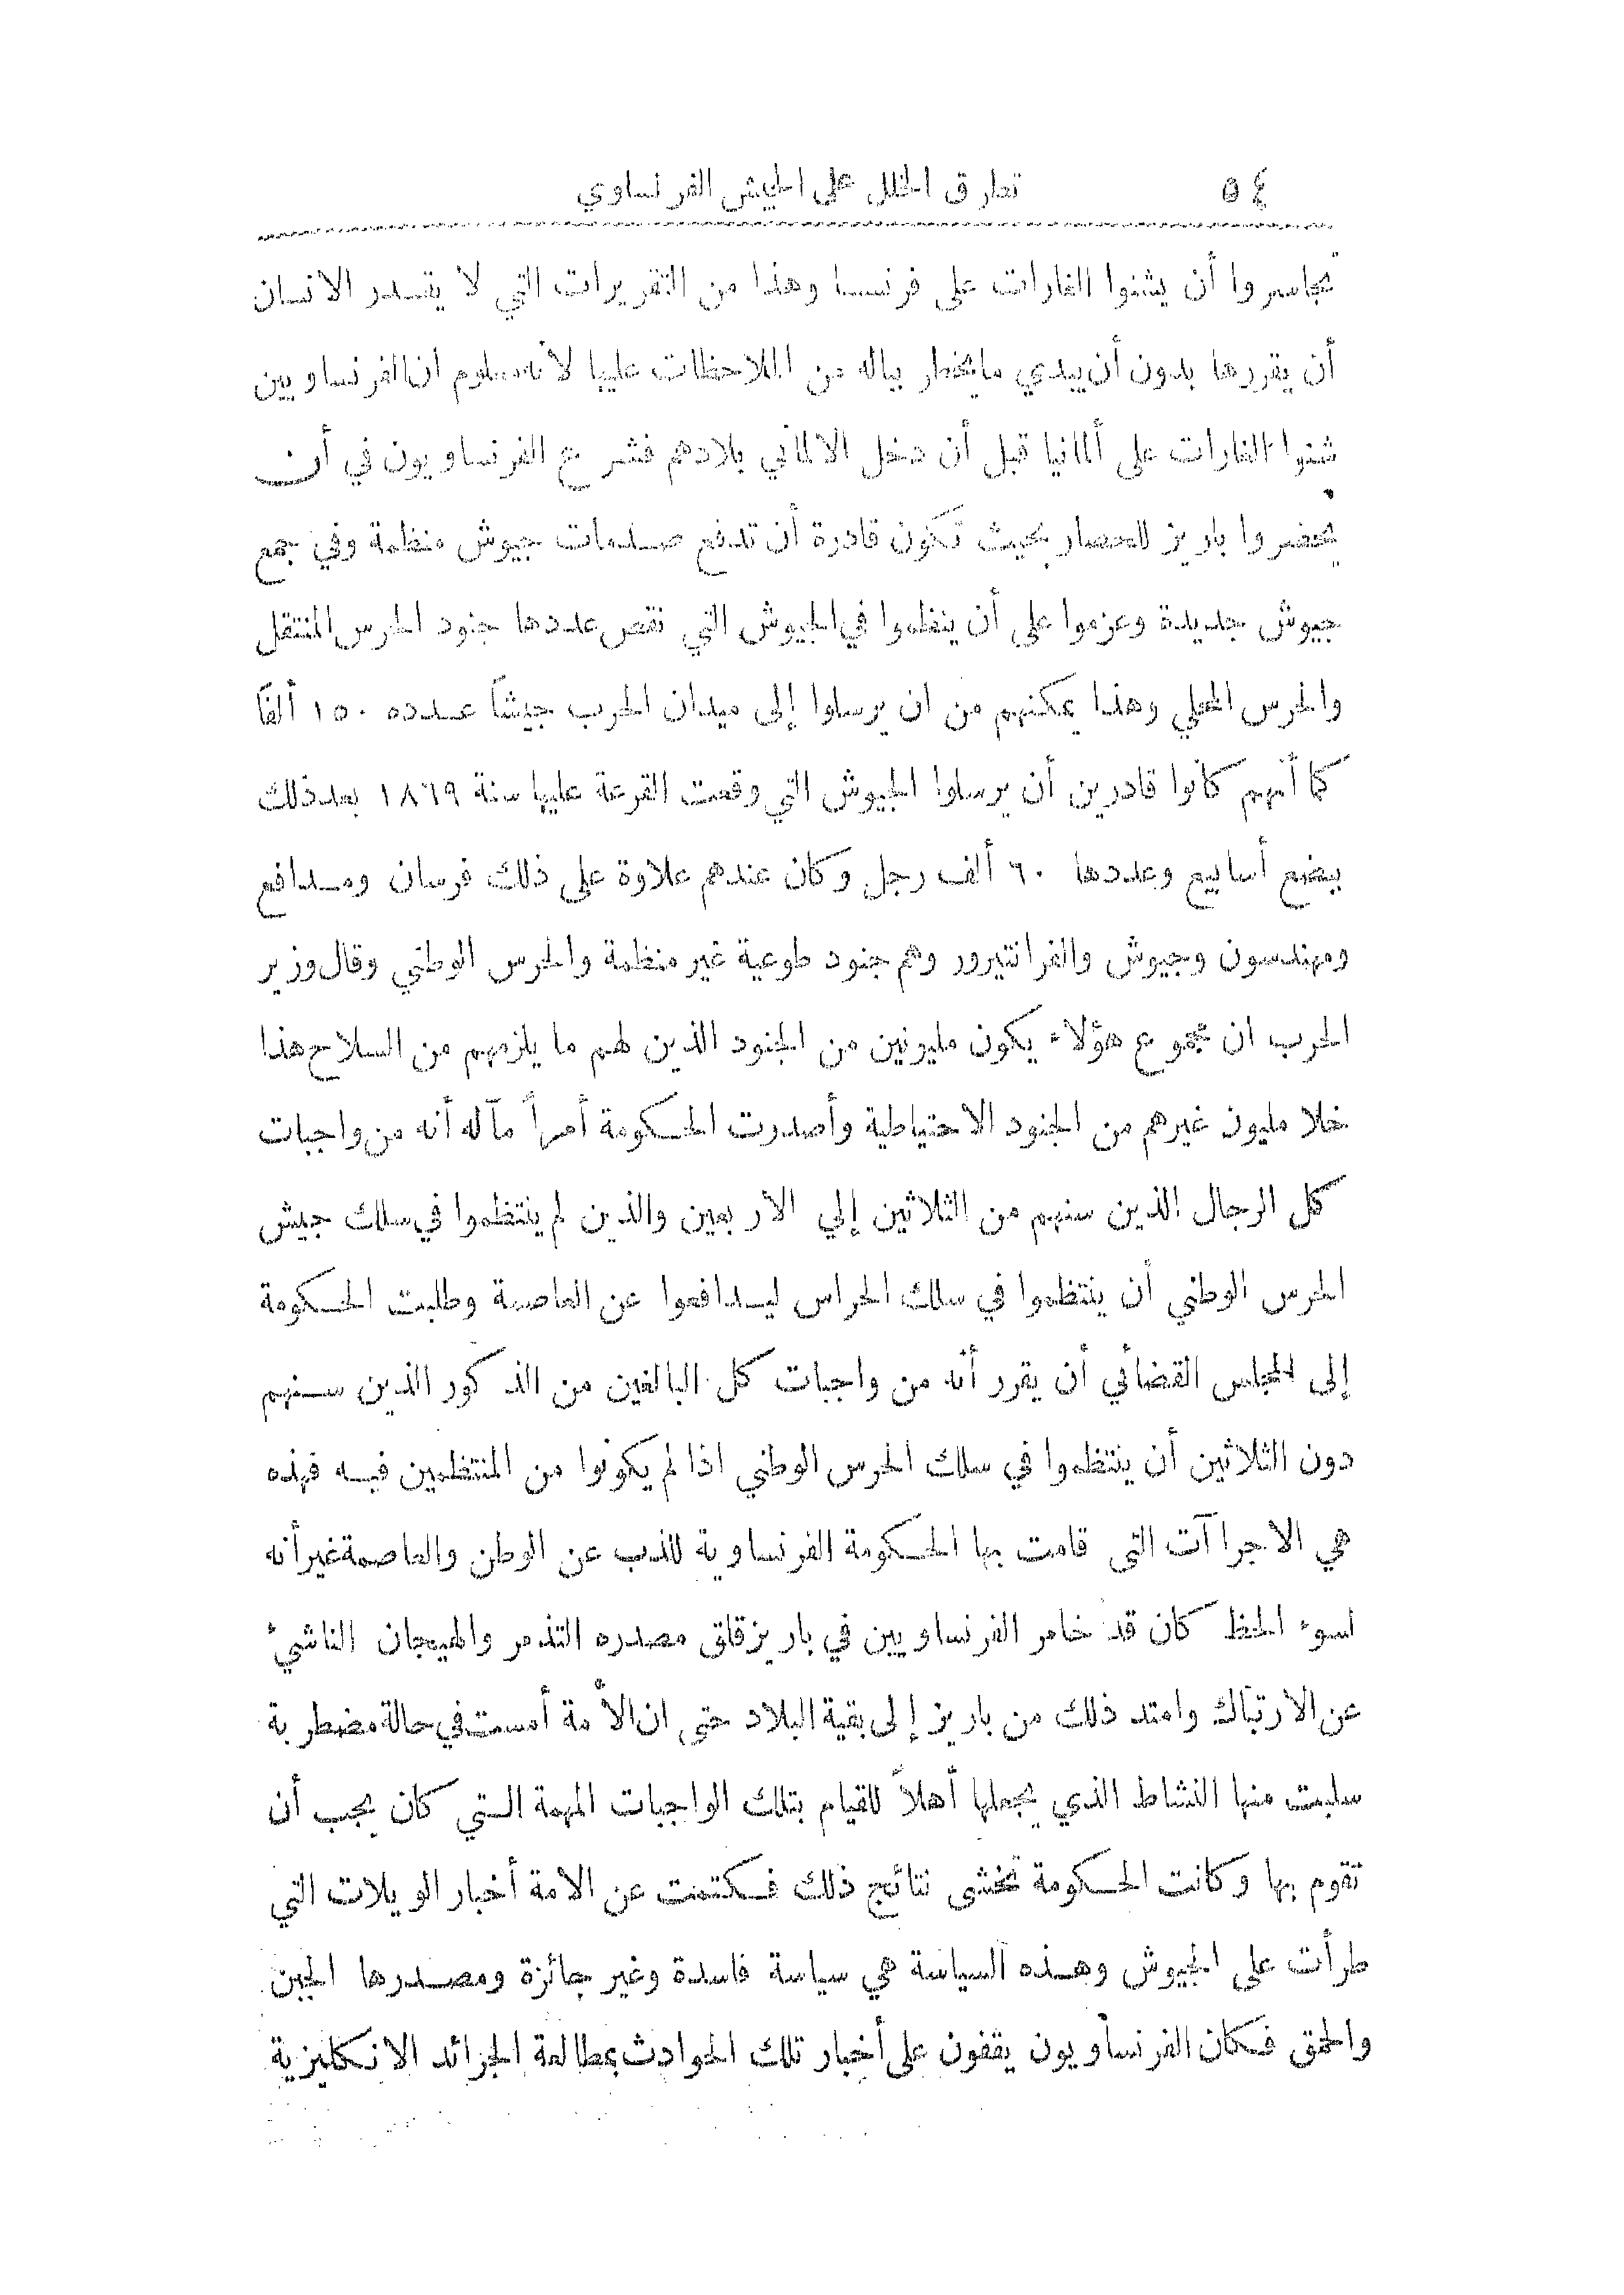 ٥٤ تطرق الخلل على الجيش الفرنساوي
تجاسروا أن يشنوا الغارات على فرنسا وهذا من التقريرات التي لا يقدر الانسان
أن يقررها بدون أن يبدي ما يخطر بباله من الملاحظات عليها لأنه معلوم ان الفرنساويين
شنوا الغارات على ألمانيا قبل أن دخل الالماني بلادهم فشرع الفرنساويون في أن
يحضروا باريز للحصار بحيث تكون قادرة أن تدفع صدمات جيوش منظمة وفي جمع
جيوش جديدة وعزموا على أن ينظموا في الجيوش التي نقص عددها جنود الحرس المنتقل
والحرس المحلي وهذا يمكنهم من ان يرسلوا إلى ميدان الحرب جيشاً عدده ١٥٠ ألفاً
كما أنهم كانوا قادرين أن يرسلوا الجيوش التي وقعت القرعة عليها سنة ١٨٦٩ بعد ذلك
ببضع أسابيع وعددها ٦٠ ألف رجل وكان عندهم علاوة على ذلك فرسان ومدافع
ومهندسون وجيوش والفرانتيرور وهم جنود طوعية غير منظمة والحرس الوطني وقال وزير
الحرب ان مجموع هؤلاء يكون مليونين من الجنود الذين لهم ما يلزمهم من السلاح هذا
خلا مليون غيرهم من الجنود الاحتياطية وأصدرت الحكومة أمراً مآله أنه من واجبات
كل الرجال الذين سنهم من الثلاثين إلي الاربعين والذين لم ينتظموا في سلك جيش
الحرس الوطني أن ينتظموا في سلك الحراس ليدافعوا عن العاصمة وطلبت الحكومة
إلى المجلس القضائي أن يقرر أنه من واجبات كل البالغين من الذكور الذين سنهم
دون الثلاثين أن ينتظموا في سلك الحرس الوطني اذا لم يكونوا من المنتظمين فيه فهذه
هي الاجراآت التى قامت بها الحكومة الفرنساوية للذب عن الوطن والعاصمة غير أنه
لسوء الحظ كان قد خامر الفرنساويين في باريز قلق مصدره التذمر والهيجان الناشئ
عن الارتباك وامتد ذلك من باريز إلى بقية البلاد حتى ان الأمة أمست في حالة مضطربة
سلبت منها النشاط الذي يجعلها أهلاً للقيام بتلك الواجبات المهمة التي كان يجب أن
تقوم بها وكانت الحكومة تخشى نتائج ذلك فكتمت عن الامة أخبار الويلات التي
طرأت على الجيوش وهذه السياسة هي سياسة فاسدة وغير جائزة ومصدرها الجبن
والحمق فكان الفرنساويون يقفون على أخبار تلك الحوادث بمطالعة الجرائد الانكليزية